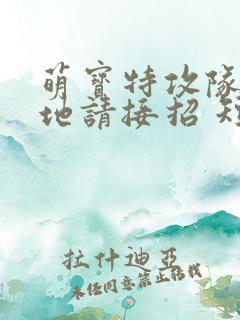 萌寶特攻隊
地請接招 短
拉什迪亞
未經同意禁止轉載